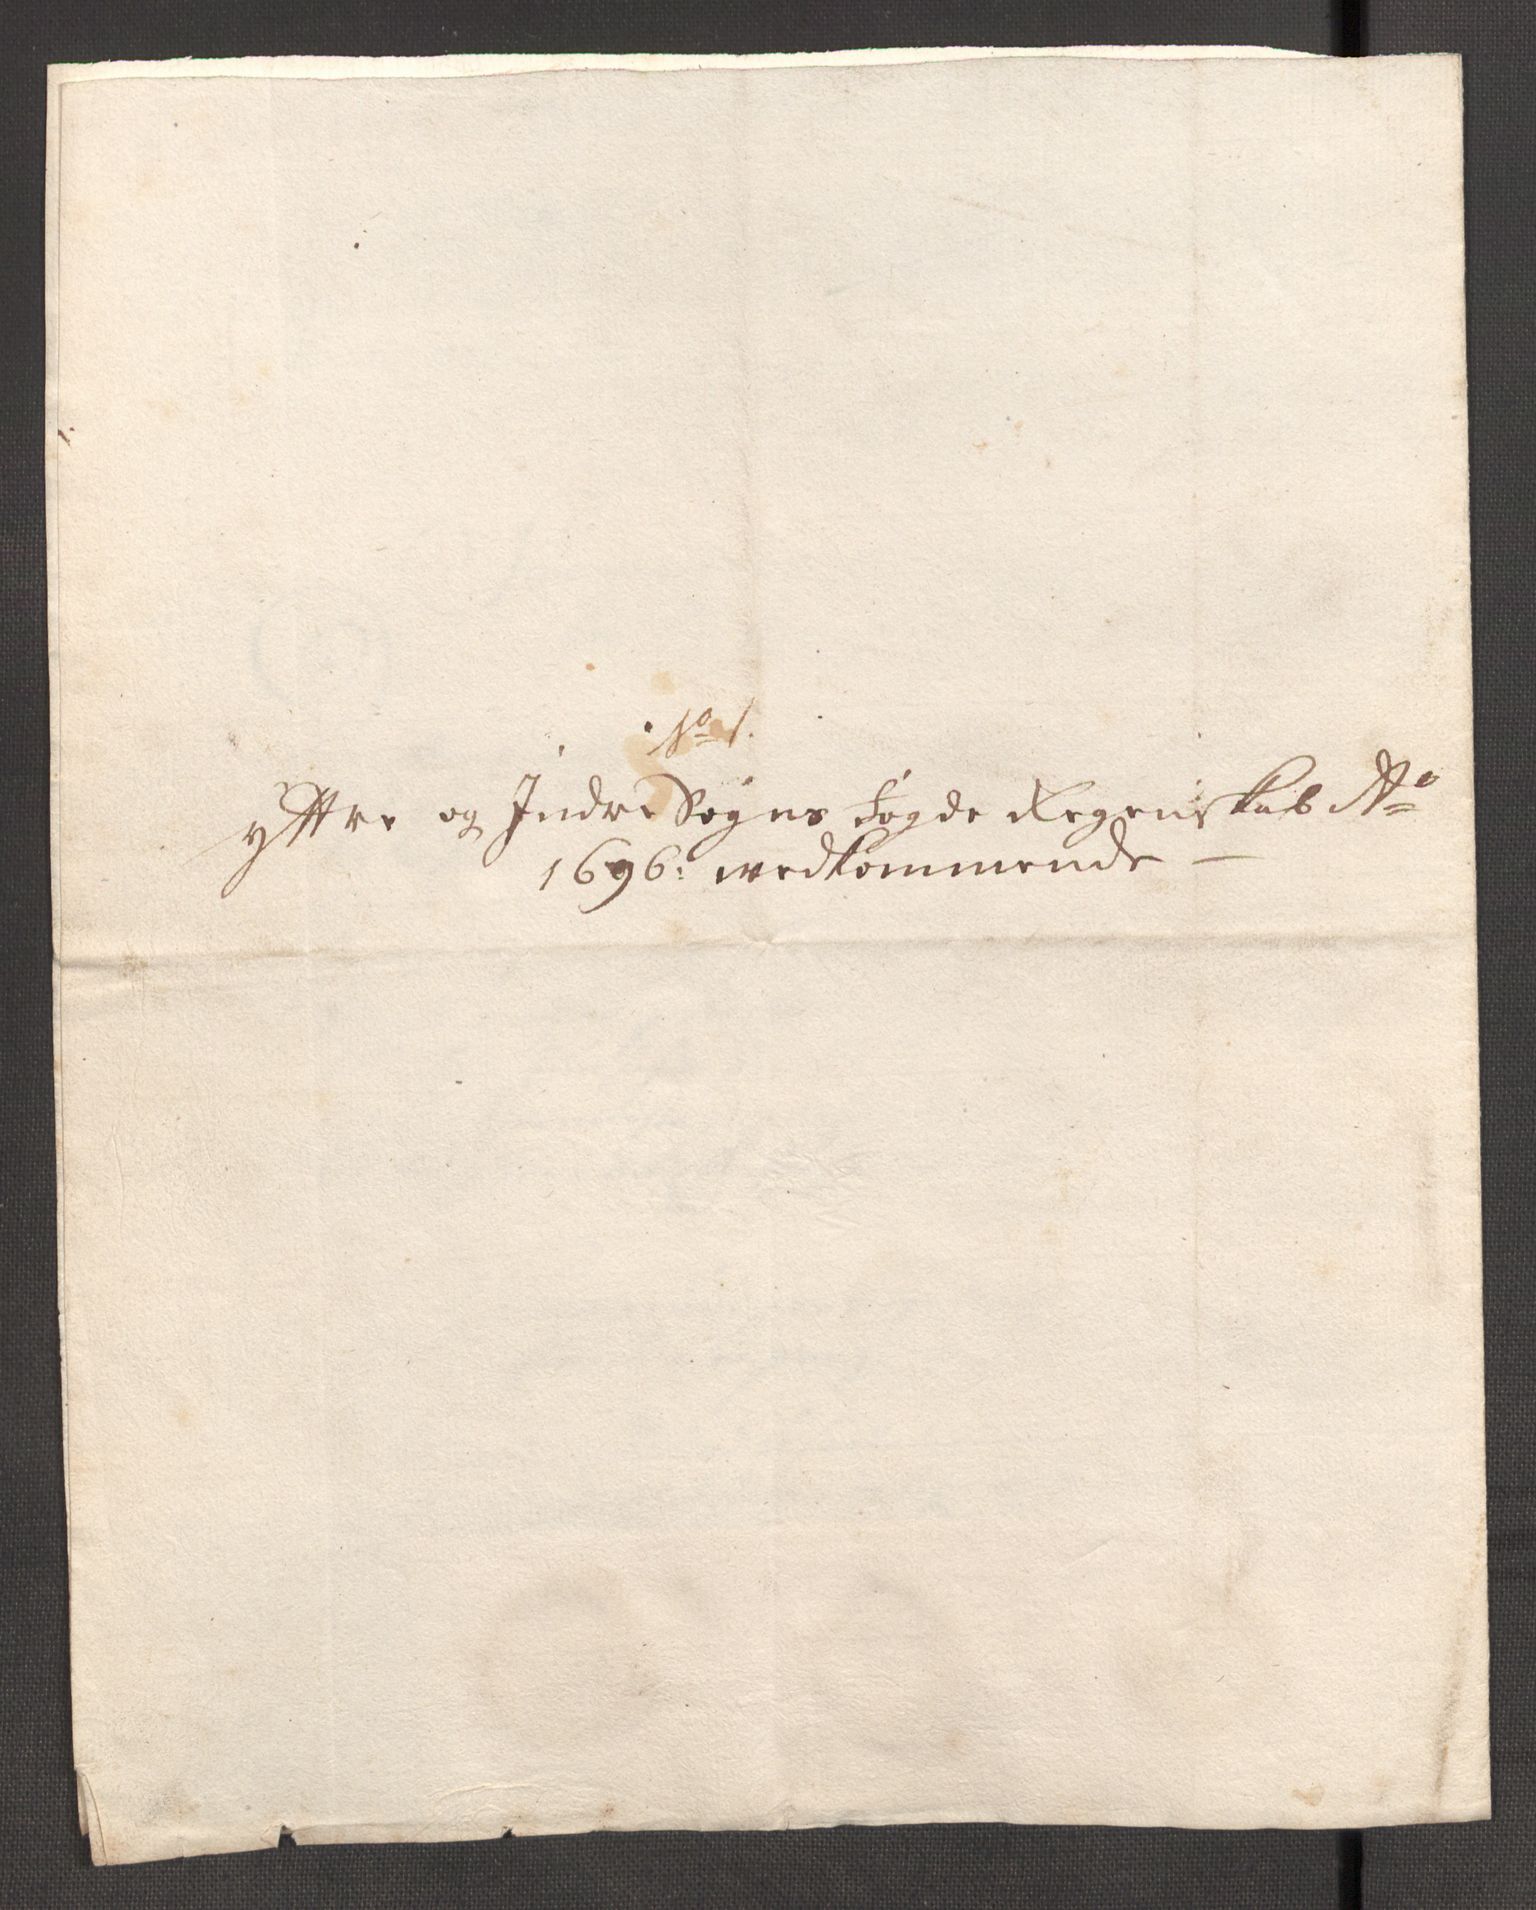 No 1.
Yttre og Indre Sogns Fogde Regenskab Ao
1696: wedkommende —